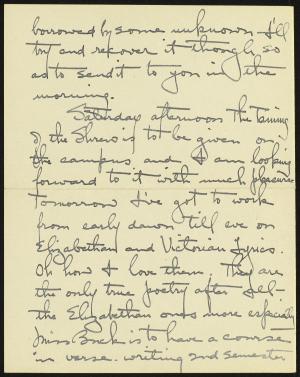 borrowed by some unknown. I'll
try and recover it though so
as to send it to you in the
morning.
Saturday afternoon The Taming
of the Shrew is to be given on
the campus and I am looking
forward to it with much pleasure.
Tomorrow I've got to work
from early dawn till eve on
Elizabethan and Victorian Lyrics.
Oh how I love them. They are
the only true poetry after all-
the Elizabethan ones more especially
Miss Buck is to have a course
in verse-writing 2nd semester